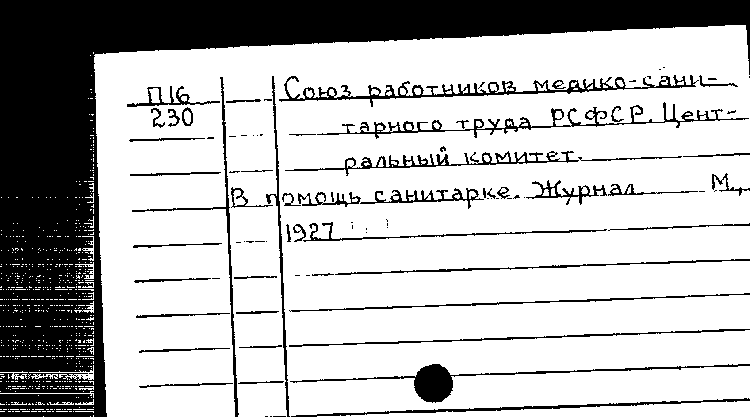 П16 Союз работников медико-сани-
230 тарного труда РСФСР. Цент-
ральный комитет.
В помощь санитарке. Журнал М.,
1927